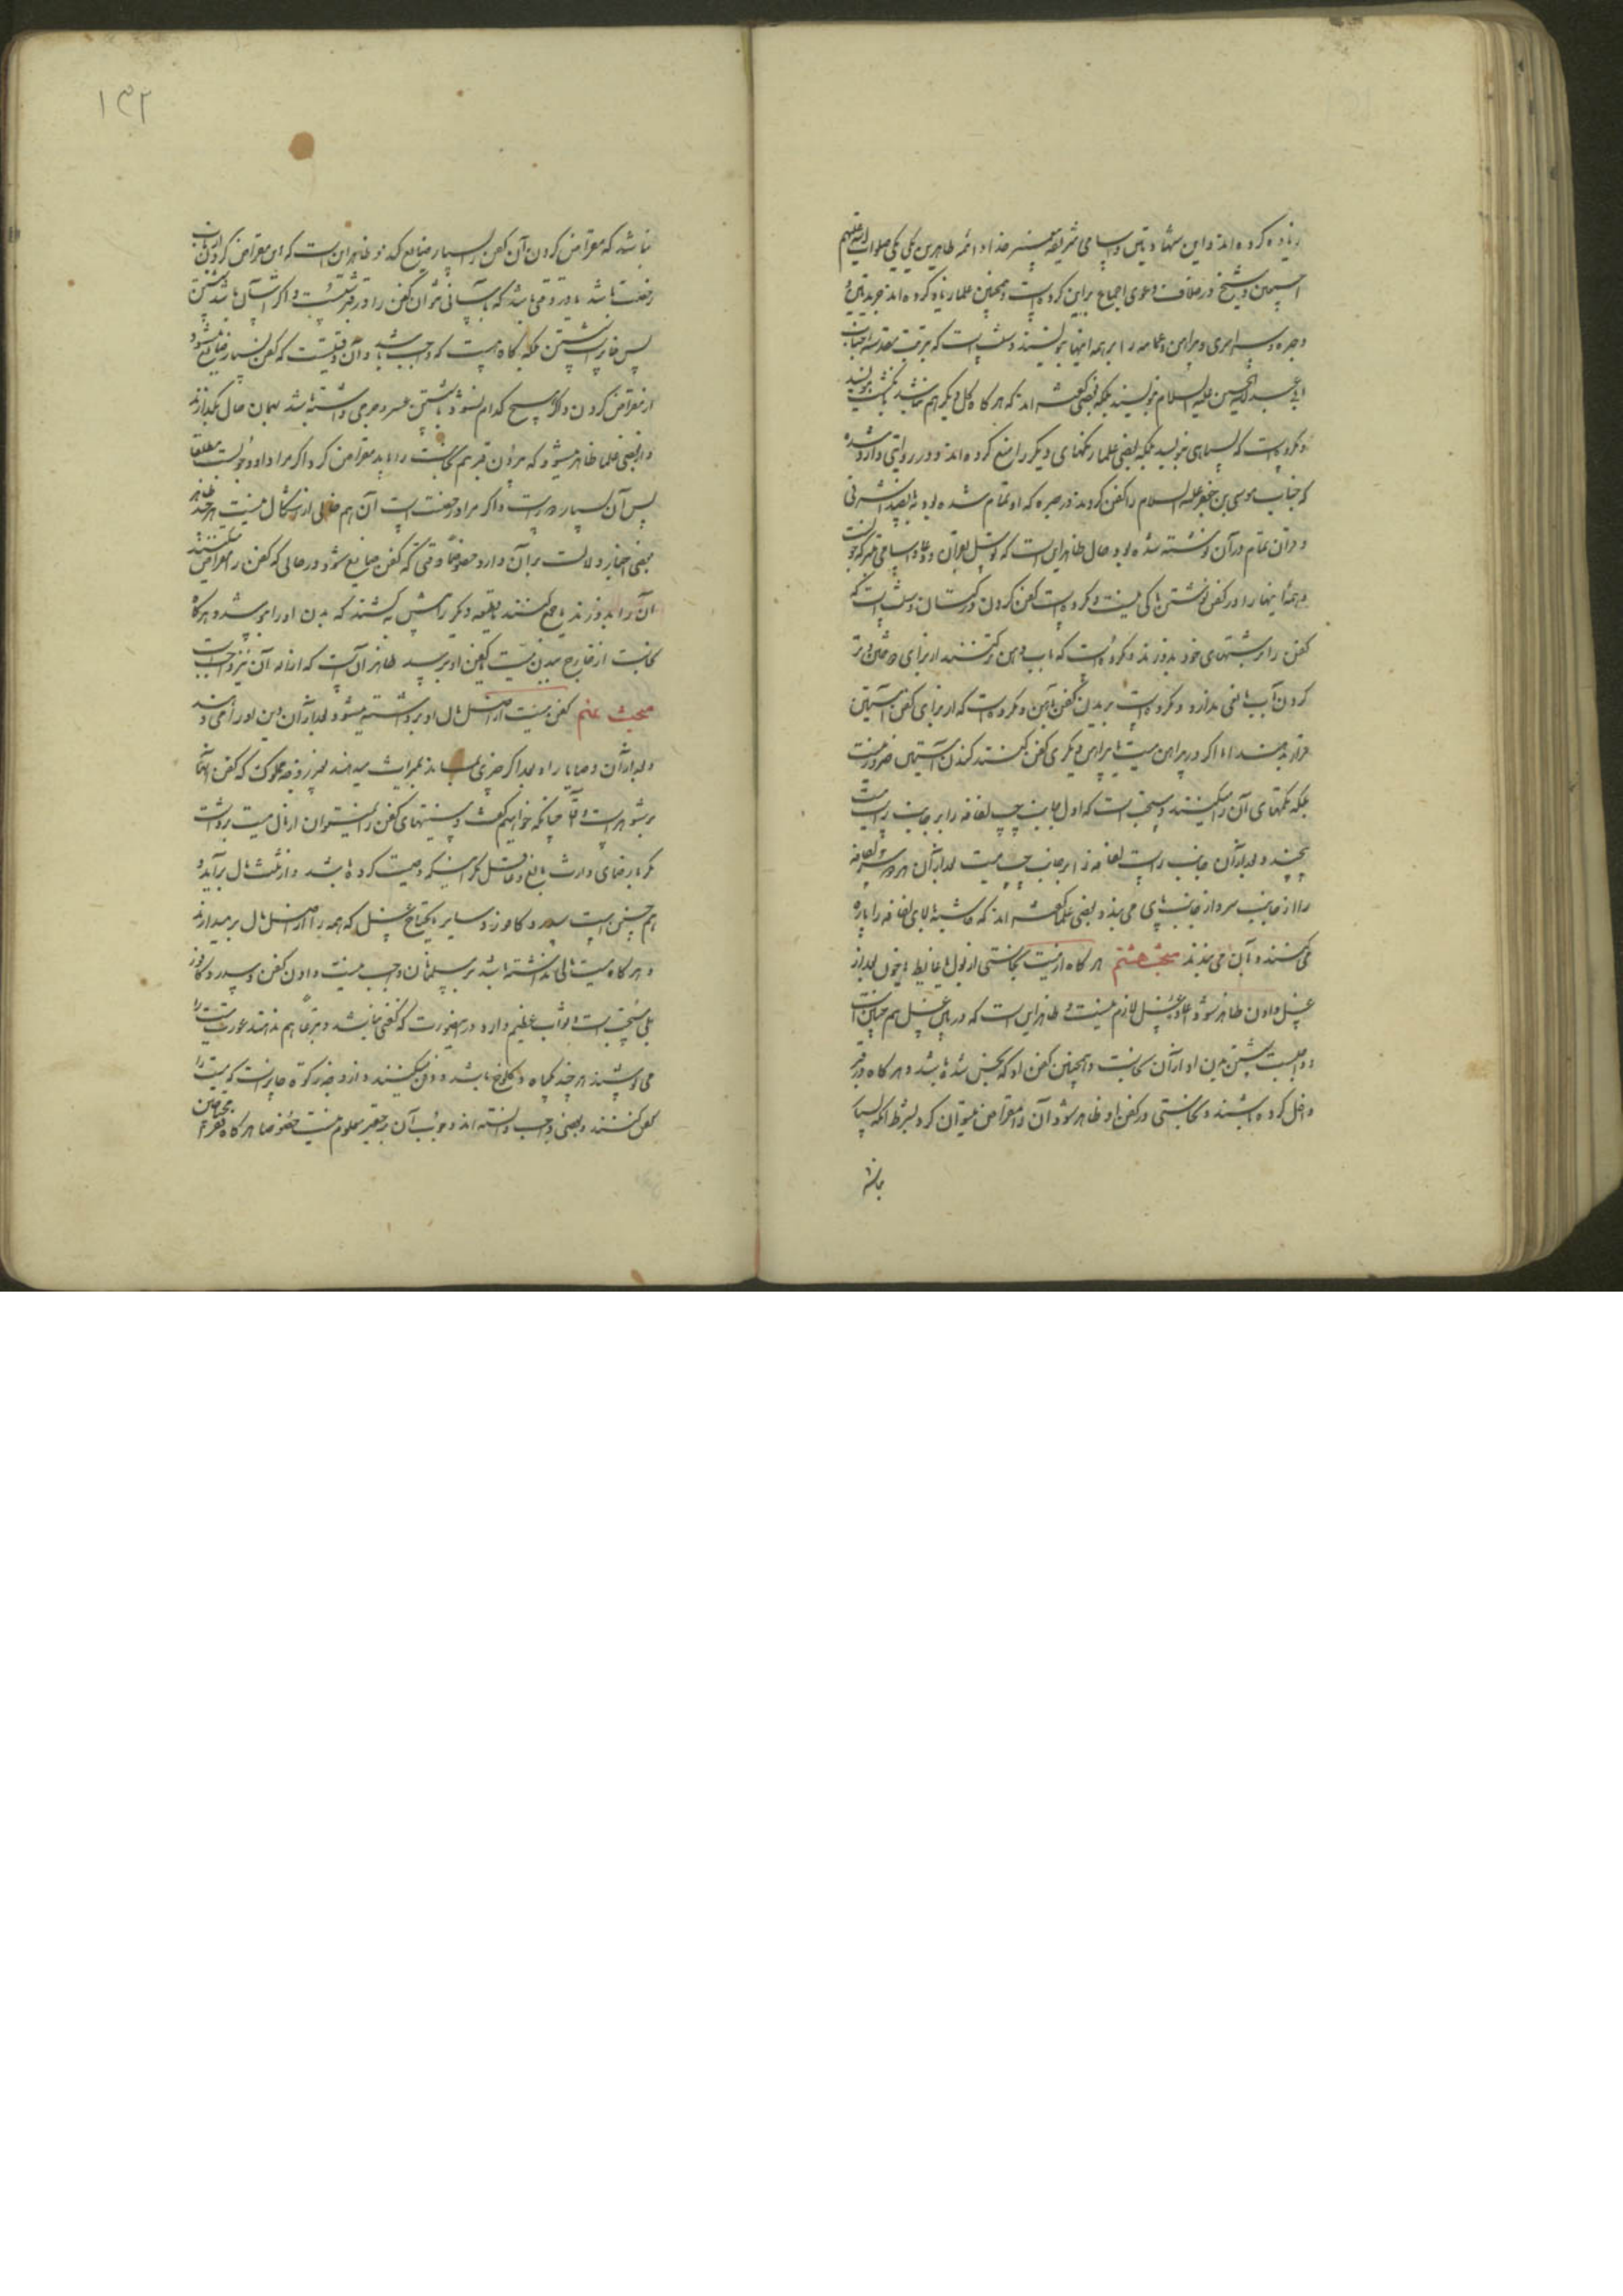 زیاده کرده اند و این شهادتین و اسامی شریفه پیغمبر خدا و ائمه طاهرین یکی یکی صلوات الله علیهم
اجمعین و شیخ در خلاف دعوی اجماع براین کرده است و همچنین علما زیاد کرده اند جریدتین
و حبره و سراسری و پیراهن و عمامه را بر همه اینها بنویسند و سنت است که بتربت مقدسه جناب
ابی عبدالله الحسین علیه السلام بنویسند بلکه بعضی گفته اند که هر گاه گل دیگر هم نباشد بانگشت بنویسند
و مکروه است که بسیاهی بنویسد بلکه بعضی علما رنگهای دیگر را منع کرده اند و در روایتی وارد شده
که جناب موسی بن جعفر علیه السلام را کفن کردند در حبره که او تمام شده بود به پانصد اشرفی
و قرآن تمام در آن نوشته شده بود و حال ظاهر این است که توسل بقرآن و دعا و اسامی متبرکه خوبست
و همه اینها را در کفن نوشتن باکی نیست و مکروه است کفن کردن در کتان و سنت است که
کفن را بریشتهای خود بدوزند و مکروه است که بآب دهن تر کنند از برای دوختن و تر
کردن آب باقی ندارد و مکروه است بریدن کفن بآهن و مکروه است که از برای کفن آستین
قرار بدهند اما اگر در پیراهن میت یا پیراهن دیگری کفن کنند کندن آستین ضرور نیست
بلکه تکمهای آن را میکنند و مستحب است که اول جانب چپ لفافه را بر جانب راست میت
بپیچند و بعد از آن جانب راست لفافه را بر جانب چپ میت بعد از آن هر دو سر لفافه
را از جانب سر و از جانب پای می بندد و بعضی علما گفته اند که حاشیه بالای لفافه را پاره
می کنند و بآن می بندند مبحث هشتم هر گاه از میت نجاستی از بول یا غایط یا خون بعد از
غسل دادن ظاهر شود اعاده غسل لازم نیست و ظاهر این است که در بین غسل هم چنین است
و واجبست شستن بدن او از آن نجاست و همچنین کفن او که نجس شده باشد و هر گاه در قبر
داخل کرده باشند و نجاستی در کفن او ظاهر شود آن را مقراض میتوان کرد بشرط آنکه بسیار
نباشد
۱۳۲
نباشد که مقراض کردن آن کفن را بسیار ضایع کند و ظاهر این است که این مقراض کردن از باب
رخصت باشد و در وقتی باشد که بآسانی نتوان کفن را در قبر شست و اگر آسان باشد شستن
پس جایز است شستن بلکه گاه هست که واجب باشد و آن وقتیست که کفن بسیار ضایع میشود
از مقراض کردن و اگر هیچ کدام نشود یا شستن عسر و حرجی داشته باشد بهمان حال بگذارند
و از بعضی علما ظاهر میشود که بیرون قبر هم نجاست را باید مقراض کرد اگر مراد او وجوبست مطلقا
پس آن بسیار دور است و اگر مراد رخصت است آن هم خالی از اشکال نیست هر چند ظاهر
بعضی اخبار دلالت بر آن دارد خصوصا وقتی که کفن ضایع شود و در حالی که کفن را مقراض میکنند
آن را بدوزند یا جمع کنند بقیه دیگر را پیش بکشند که بدن او را بپوشد و هر گاه
نجاست از خارج ببدن میت یا کفن او برسد ظاهر آن است که ازاله آن نیز واجب است
مبحث نهم کفن میت از اصل مال او برداشته میشود و بعد از آن دین او را می دهند
و بعد از آن وصایا را و بعد اگر چیزی بماند بمیراث میدهند بغیر زوجه مملوک که کفن آنها
بر شوهر است و آقا چنانکه خواهیم گفت و سنتهای کفن را نمیتوان از مال میت برداشت
مگر برضای وارث بالغ عاقل مگر اینکه وصیت کرده باشد و از ثلث مال برآید و
هم چنین است سدر و کافور و سایر مایحتاج غسل که همه را از اصل مال برمیدارند
و هر گاه میت مالی نداشته باشد بر مسلمانان واجب نیست دادن کفن و سدر و کافور
بلی مستحب است و ثواب عظیم دارد در اینصورت که کفنی نباشد و تبرعا هم ندهند عورت میت را
می پوشند هر چند بگیاه و کلوخ باشد و دفن میکنند و از وجه زکوة جایز است که میت را
کفن کنند و بعضی واجب دانسته اند و وجوب آن بر حقیر معلوم نیست خصوصا هر گاه فقرای محتاجین